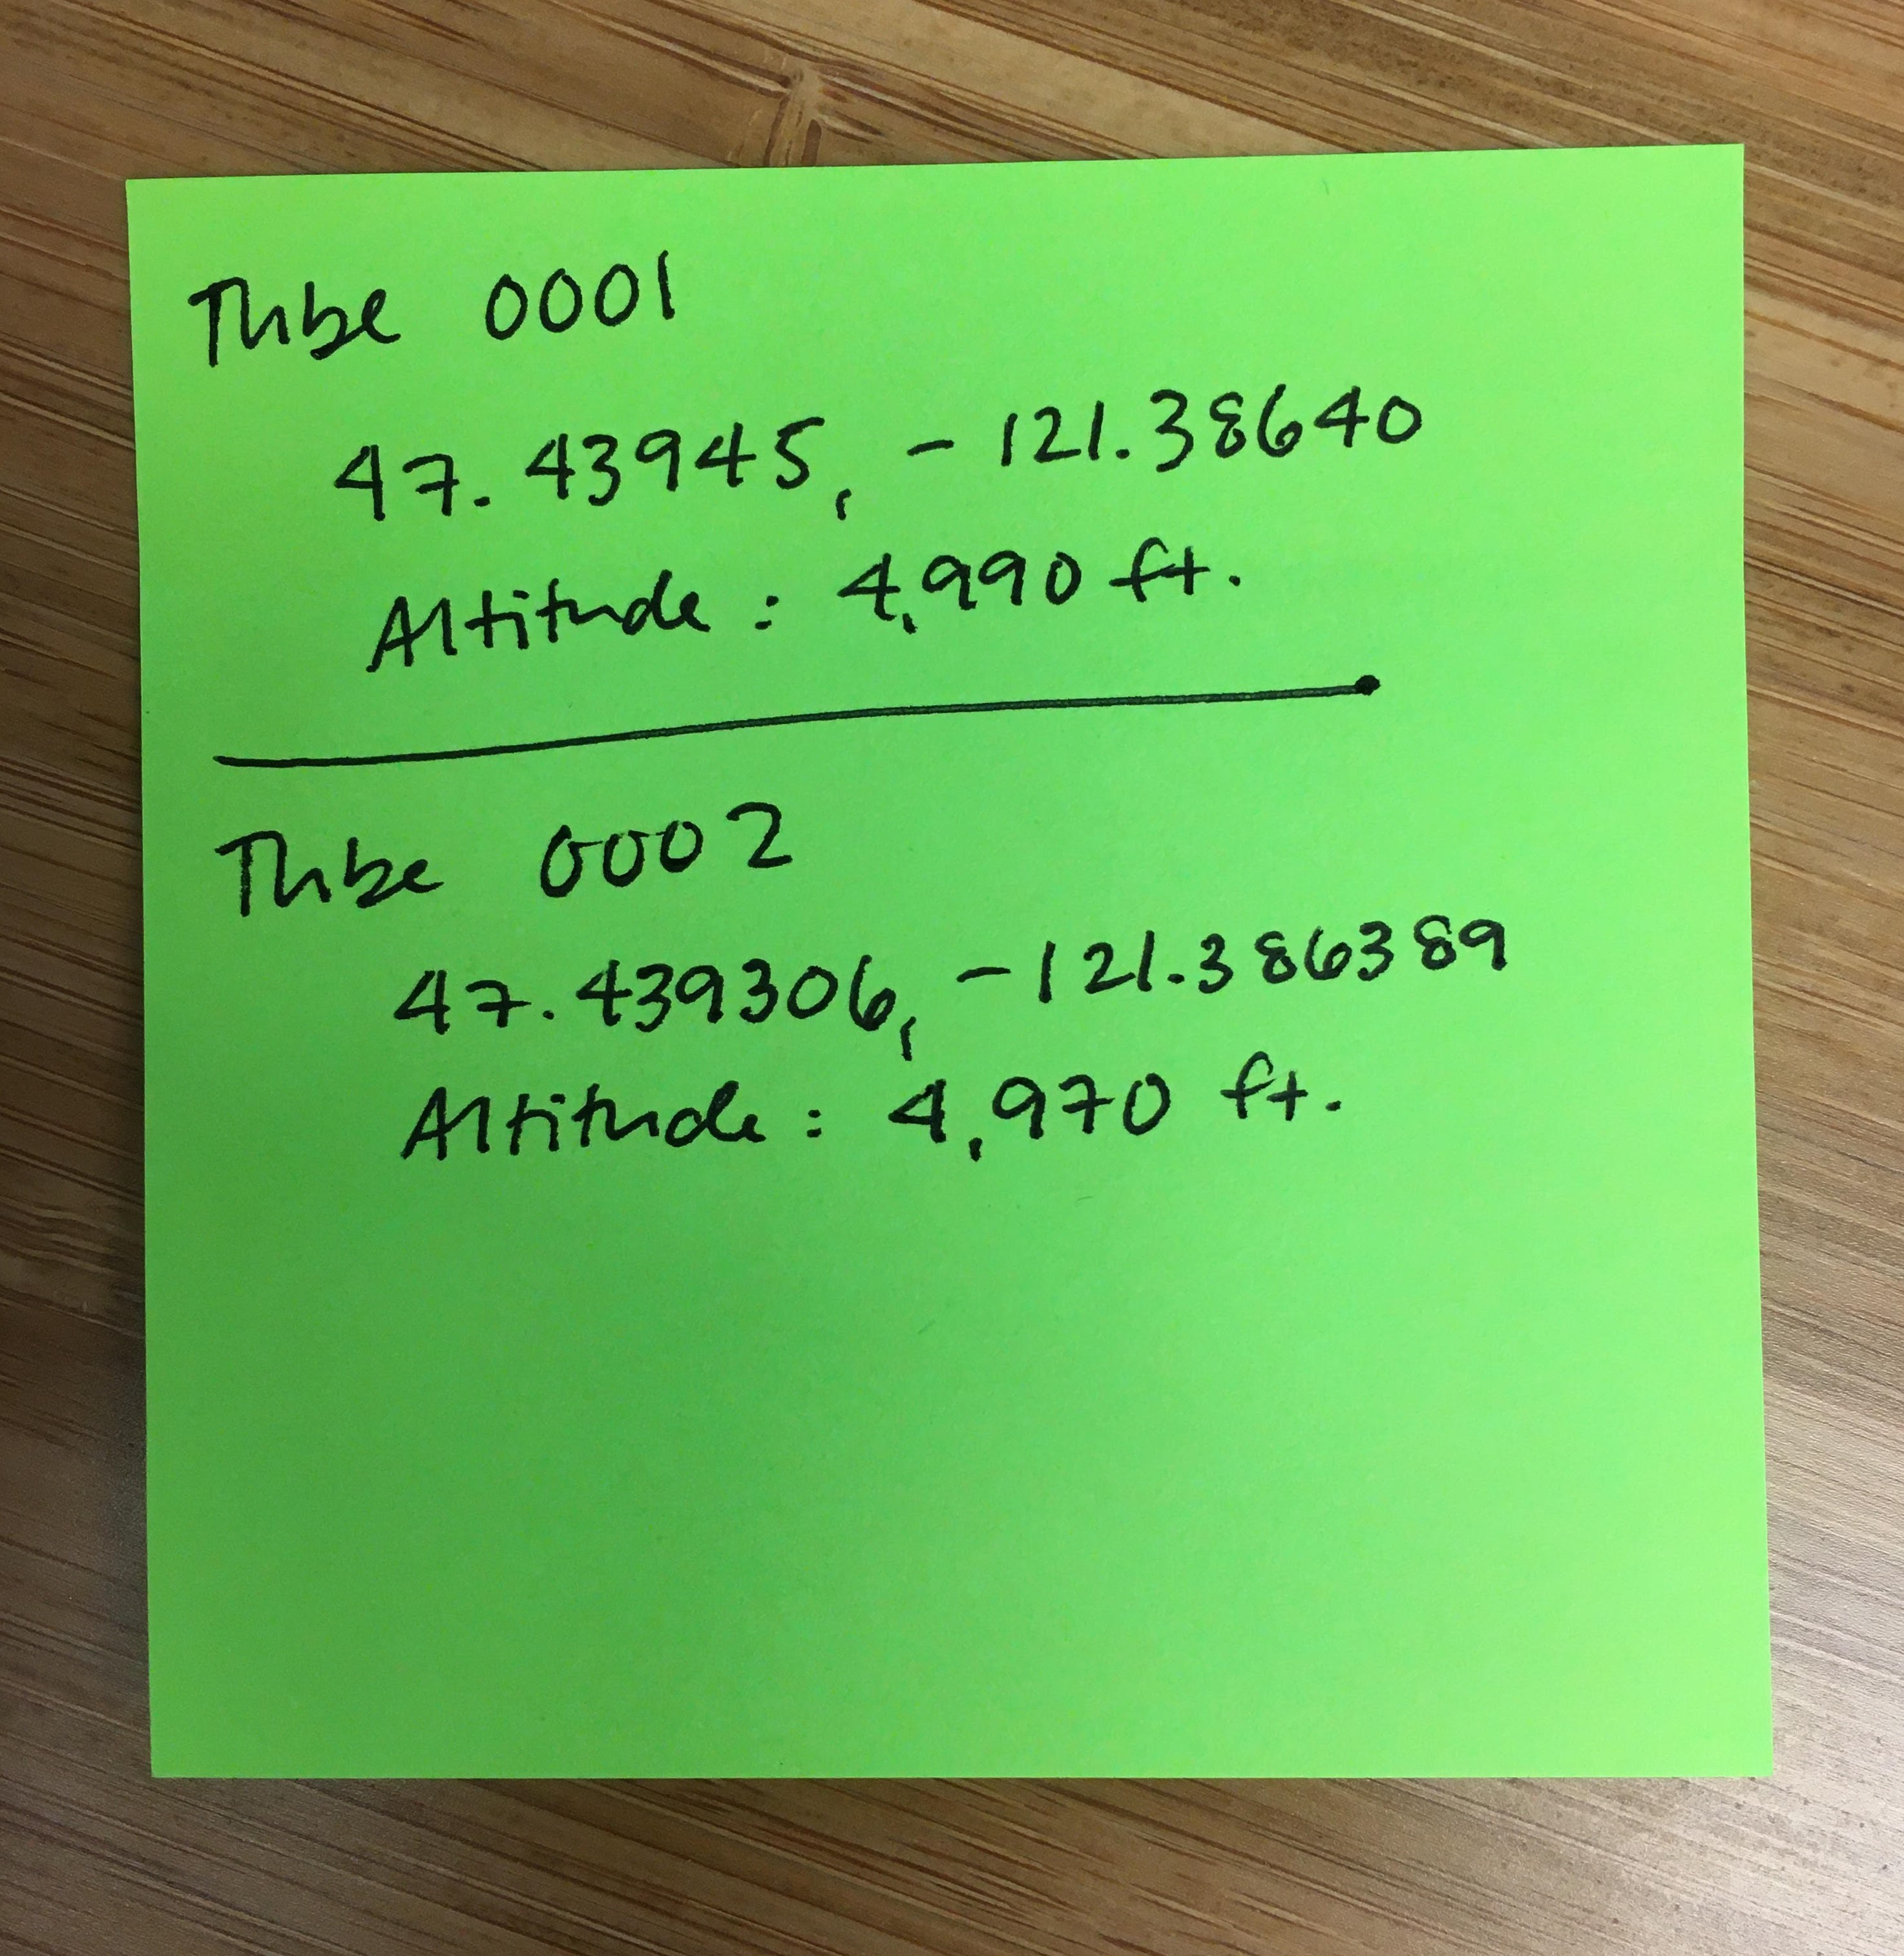 Tube 0001
47.43945, -121.38640
Altitude: 4,990 ft.
Tube 0002
47.439306, -121.386389
Altitude: 4,970 ft.